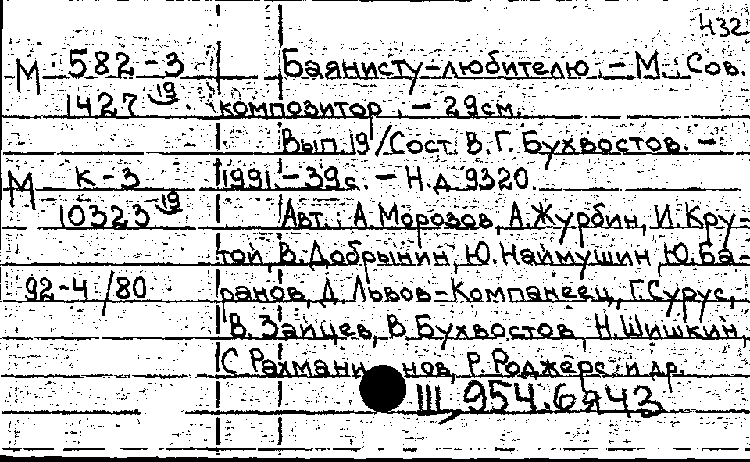 432
М 582-3 Баянисту-любителю. - М.: Сов.
1427 19 композитор. - 29см.
Вып.19/Сост. В.Г. Бухвостов. -
М К-3 1991.-39с. - Н.д. 9320.
10323 19 Авт.: А.Морозов, А.Журбин, И.Кру-
той, В.Добрынин, Ю.Наймушин, Ю.Ба-
92-4/80 ранов, Д.Львов-Компанеец, Г.Сурус,
В.Зайцев, В.Бухвостов, Н.Шишкин,
С.Рахманинов, Р.Роджерс и др.
III, 954.6я43